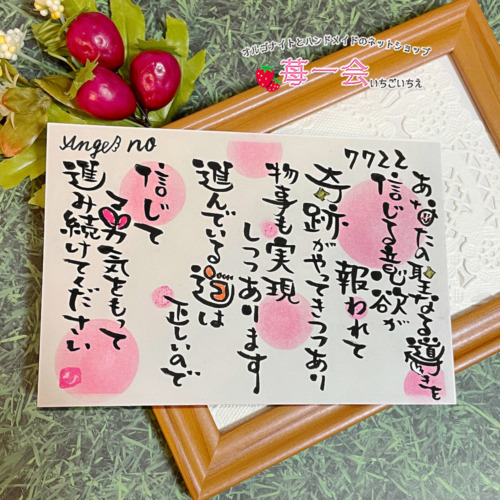 オルゴナイトとハンドメイドのネットショップ
苺一会いちごいちえ
Angel no
7722
あなたの聖なる導きを
信じる意欲が
報われて
奇跡がやってきつつあり
物事も実現
しつつあります
進んでいる道は
正しいので
信じて
勇気をもって
進み続けてください